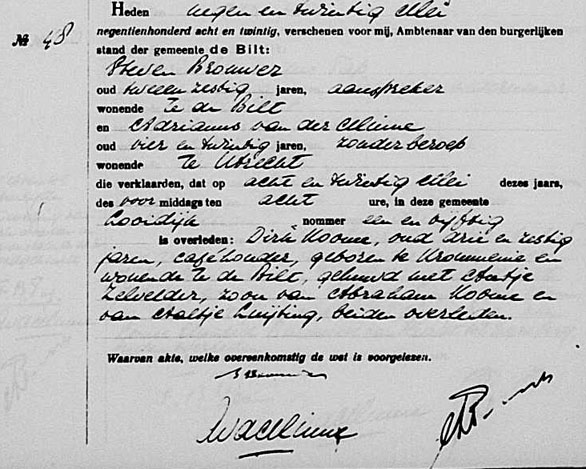 Heden negen en twintig Mei
No 48 negentienhonderd acht en twintig, verschenen voor mij, Ambtenaar van den burgerlijken
stand der gemeente de Bilt:
Steven Brouwer
oud twee en zestig jaren, aanspreker
wonende te de Bilt
en Adrianus van der Minne
oud vier en twintig jaren, zonder beroep
wonende te Utrecht
die verklaarden, dat op acht en twintig Mei dezes jaars,
des voor middags ten acht ure, in deze gemeente
Looidijk nommer een en vijftig
is overleden: Dirk Koome, oud drie en zestig
jaren, caféhouder, geboren te Krommenie en
wonende te de Bilt, gehuwd met Aaltje
Zelvelder, zoon van Abraham Koome en
van Aaltje Luijting, beiden overleden.
Waarvan akte, welke overeenkomstig de wet is voorgelezen.